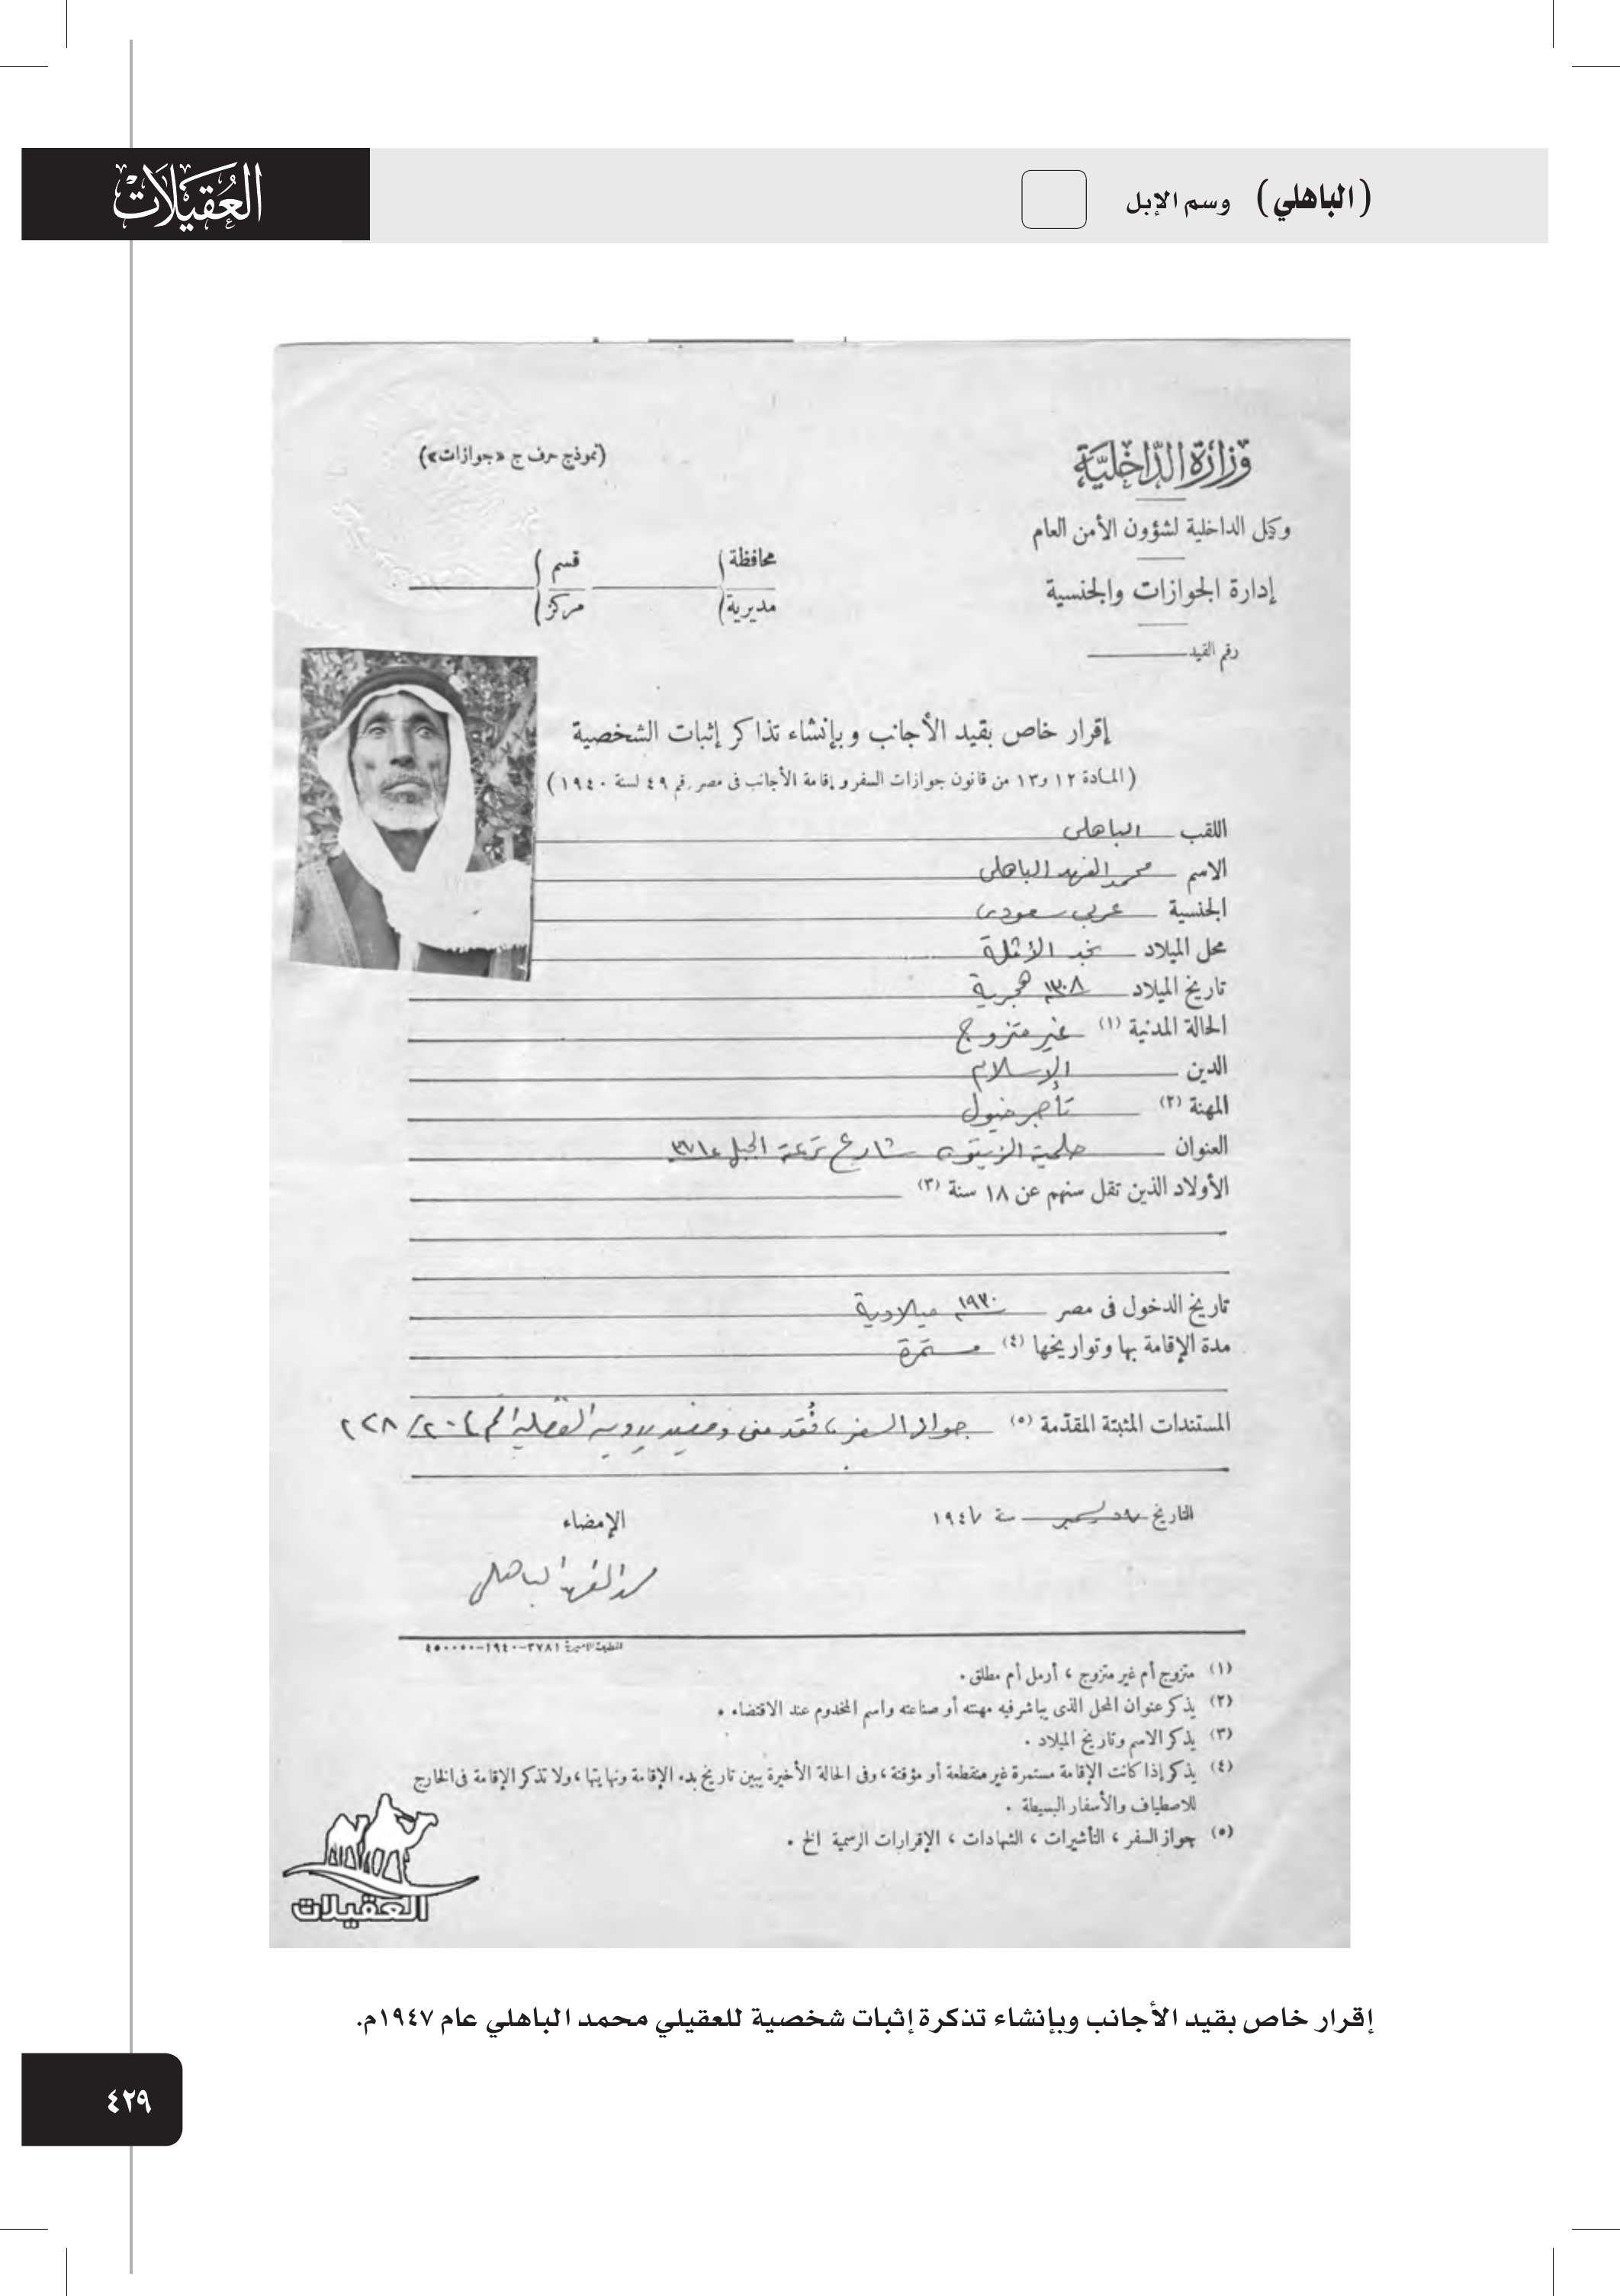 العُقيلات
(الباهلي) وسم الإبل
وزارة الداخلية
(نموذج حرف ج «جوازات»)
وكيل الداخلية لشؤون الأمن العام
محافظة
مديرية
قسم
مركز
إدارة الجوازات والجنسية
رقم القيد
إقرار خاص بقيد الأجانب وبإنشاء تذاكر إثبات الشخصية
(المادة ١٢ و١٣ من قانون جوازات السفر وإقامة الأجانب فى مصر رقم ٤٩ لسنة ١٩٤٠)
اللقب الباهلى
الاسم محمد الفهد الباهلى
الجنسية عربي سعودى
محل الميلاد نجد الأثلة
تاريخ الميلاد ١٣٠٨ هجرية
الحالة المدنية (١) غير متزوج
الدين الإسلام
المهنة (٢) تاجر خيول
العنوان حلمية الزيتون شارع ترعة الجبل
الأولاد الذين تقل سنهم عن ١٨ سنة (٣)
تاريخ الدخول فى مصر ميلادية
مدة الإقامة بها وتواريخها (٤) مستمرة
المستندات المثبتة المقدّمة (٥) جواز السفر فُقد منى
التاريخ ديسمبر سنة ١٩٤٧
الإمضاء
محمد الفهد الباهلى
المطبعة الأميرية ٣٧٨١-١٩٤٠-٤٥٠٠٠٠
(١) متزوج أم غير متزوج ، أرمل أم مطلق .
(٢) يذكر عنوان المحل الذى يباشر فيه مهنته أو صناعته واسم المخدوم عند الاقتضاء .
(٣) يذكر الاسم وتاريخ الميلاد .
(٤) يذكر إذا كانت الإقامة مستمرة غير منقطعة أو مؤقتة ، وفى الحالة الأخيرة يبين تاريخ بدء الإقامة ونهايتها ، ولا تذكر الإقامة فى الخارج
للاصطياف والأسفار البسيطة .
(٥) جواز السفر ، التأشيرات ، الشهادات ، الإقرارات الرسمية الخ .
العقيلات
إقرار خاص بقيد الأجانب وبإنشاء تذكرة إثبات شخصية للعقيلي محمد الباهلي عام ١٩٤٧م.
٤٢٩